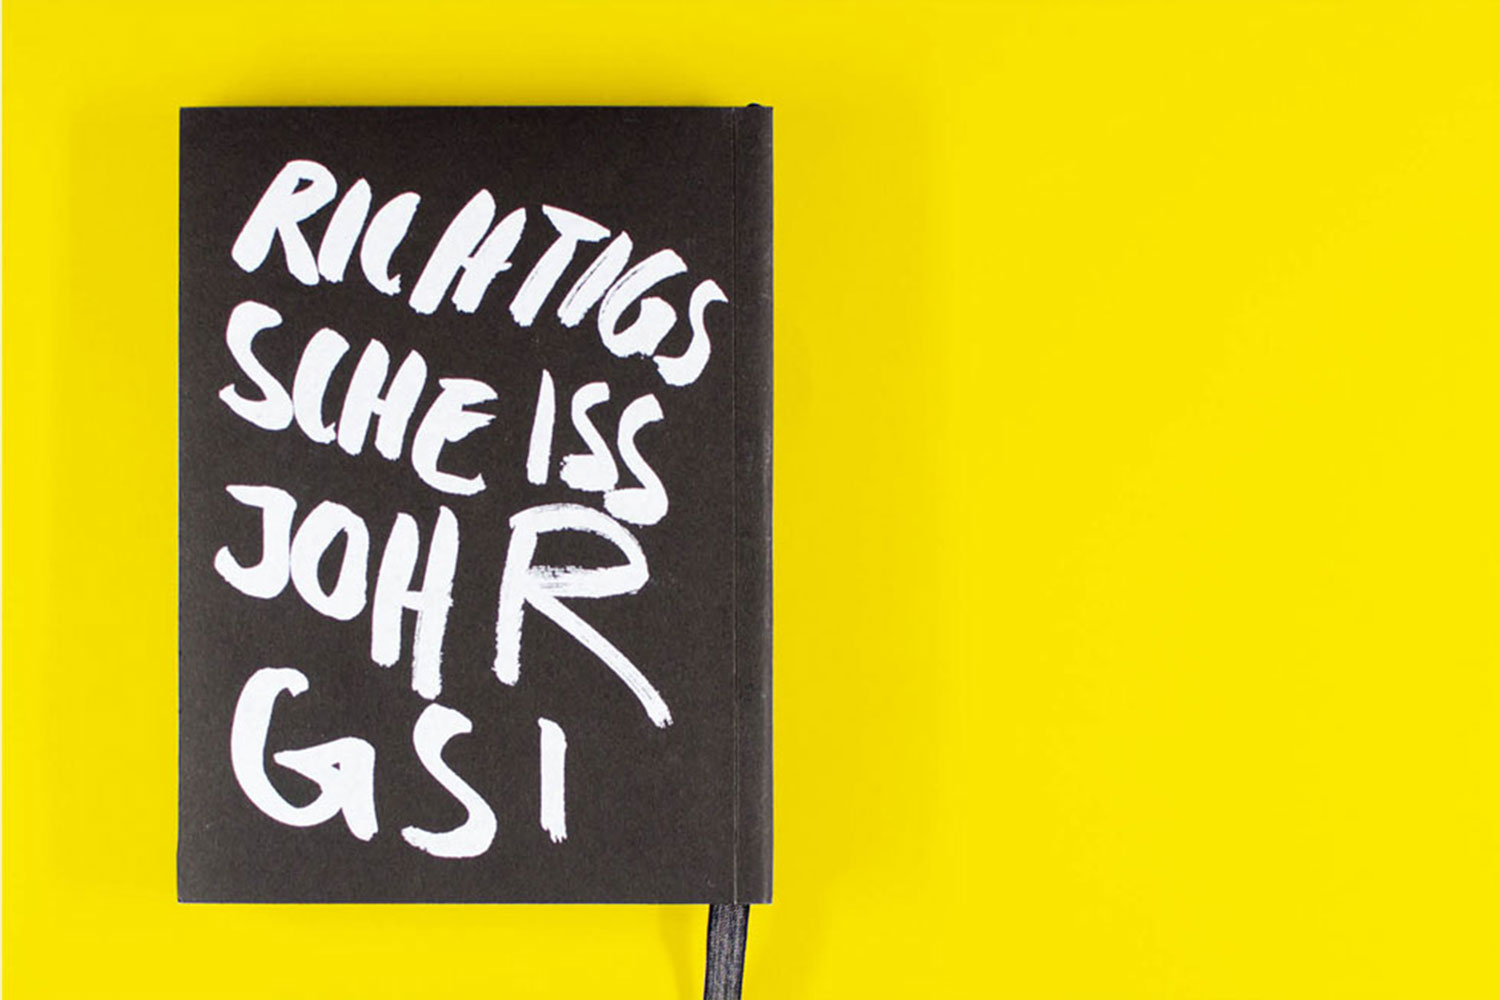 RICHTIGS
SCHEISS
JOHR
GSI